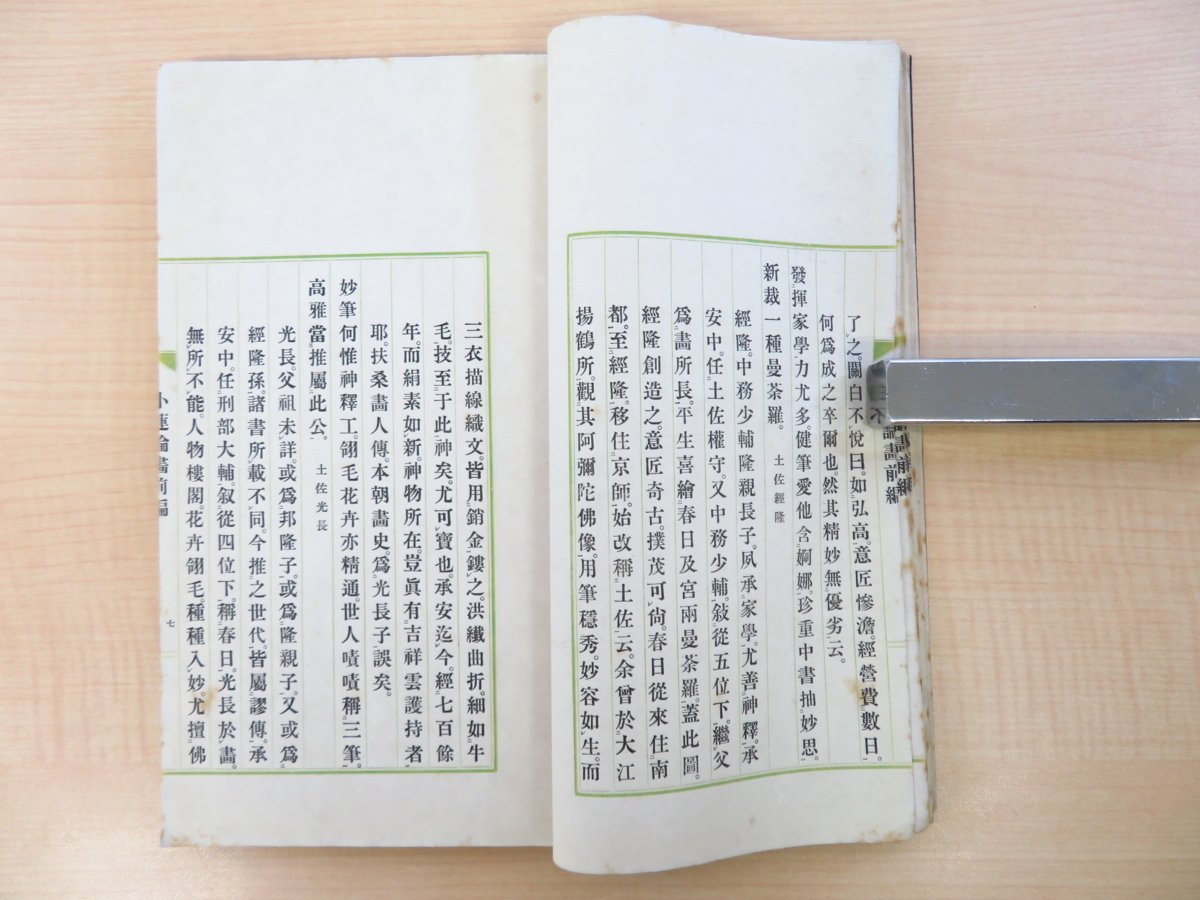 了之。關白不悅曰。如弘高。意匠慘澹。經營費數日。
何爲成之卒爾也。然其精妙無優劣云。
發揮家學力尤多。健筆愛他含婀娜。珍重中書抽妙思。
新裁一種曼荼羅。 土佐經隆
經隆。中務少輔隆親長子。夙承家學。尤善神釋。承
安中。任土佐權守。又中務少輔。敍從五位下。繼父
爲畫所長。平生喜繪春日及宮兩曼荼羅。蓋此圖。
經隆創造之。意匠奇古。撲茂可尙。春日從來住南
都。至經隆。移住京師。始改稱土佐云。余曾於大江
揚鶴所。觀其阿彌陀佛像。用筆穩秀。妙容如生。而
三衣描線織文。皆用銷金鏤之。洪纖曲折。細如牛
毛。技至于此神矣。尤可寶也。承安迄今。經七百餘
年。而絹素如新。神物所在。豈眞有吉祥雲護持者
耶。扶桑畫人傳。本朝畫史。爲光長子。誤矣。
妙筆何惟神釋工。翎毛花卉亦精通。世人嘖嘖稱三筆。
高雅當推屬此公。 土佐光長
光長。父祖未詳。或爲邦隆子。或爲隆親子。又或爲
經隆孫。諸書所載不同。今推之世代。皆屬謬傳。承
安中。任刑部大輔。叙從四位下。稱春日。光長於畫。
無所不能。人物樓閣。花卉翎毛。種種入妙。尤擅佛
小蓮論畫前編
七
論畫前編